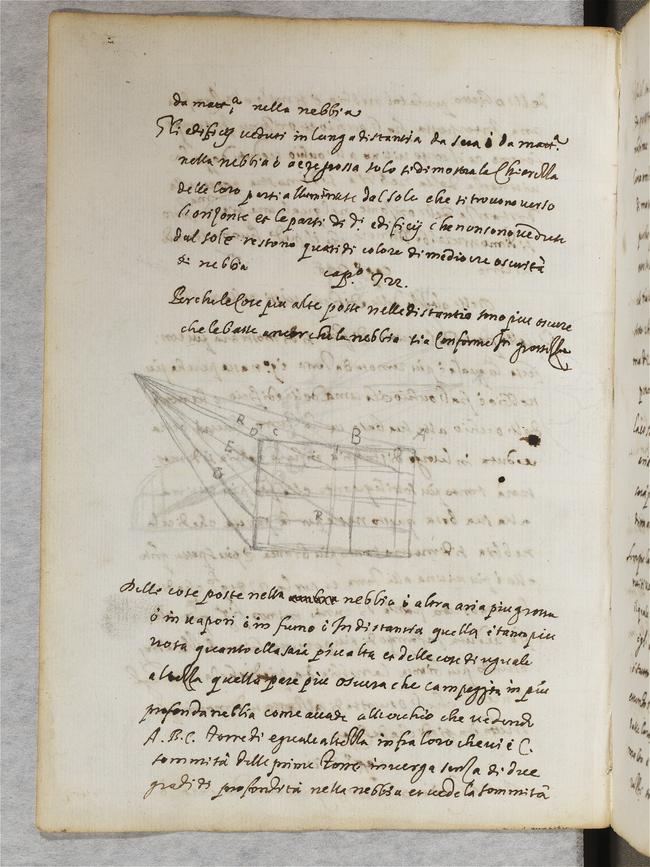 da matt.ª nella nebbia
Gli edificij ueduti in lunga distantia da sera ò da matt.ª
nella nebbia ò aere grossa solo si dimostra la Chiarezza
delle loro parti alluminate dal sole che si trouono uerso
l'orizonte et le parti di d.i edificij che non sono uedute
dal sole restono quasi di colore di mediocre oscurità
di nebbia cap.º
Perche le Cose piu alte poste nelle distantie sono piu oscure
che le basse ancor che la nebbia sia Conforme In grossezza
R D C B A
E
R
Delle cose poste nella nebbia ò altra aria piu grossa
ò in uapori ò in fumo ò In distantia quella è tanto piu
nota quanto ella sarà piu alta et delle cose di uguale
altezza quella pare piu oscura che campeggia in piu
profonda nebbia come accade all'occhio che uedendo
A. B. C. torre di eguale altezza infra loro che ui è C.
sommità della prima torre in uerga di due
gradi di profondità nella nebbia et uede la sommità